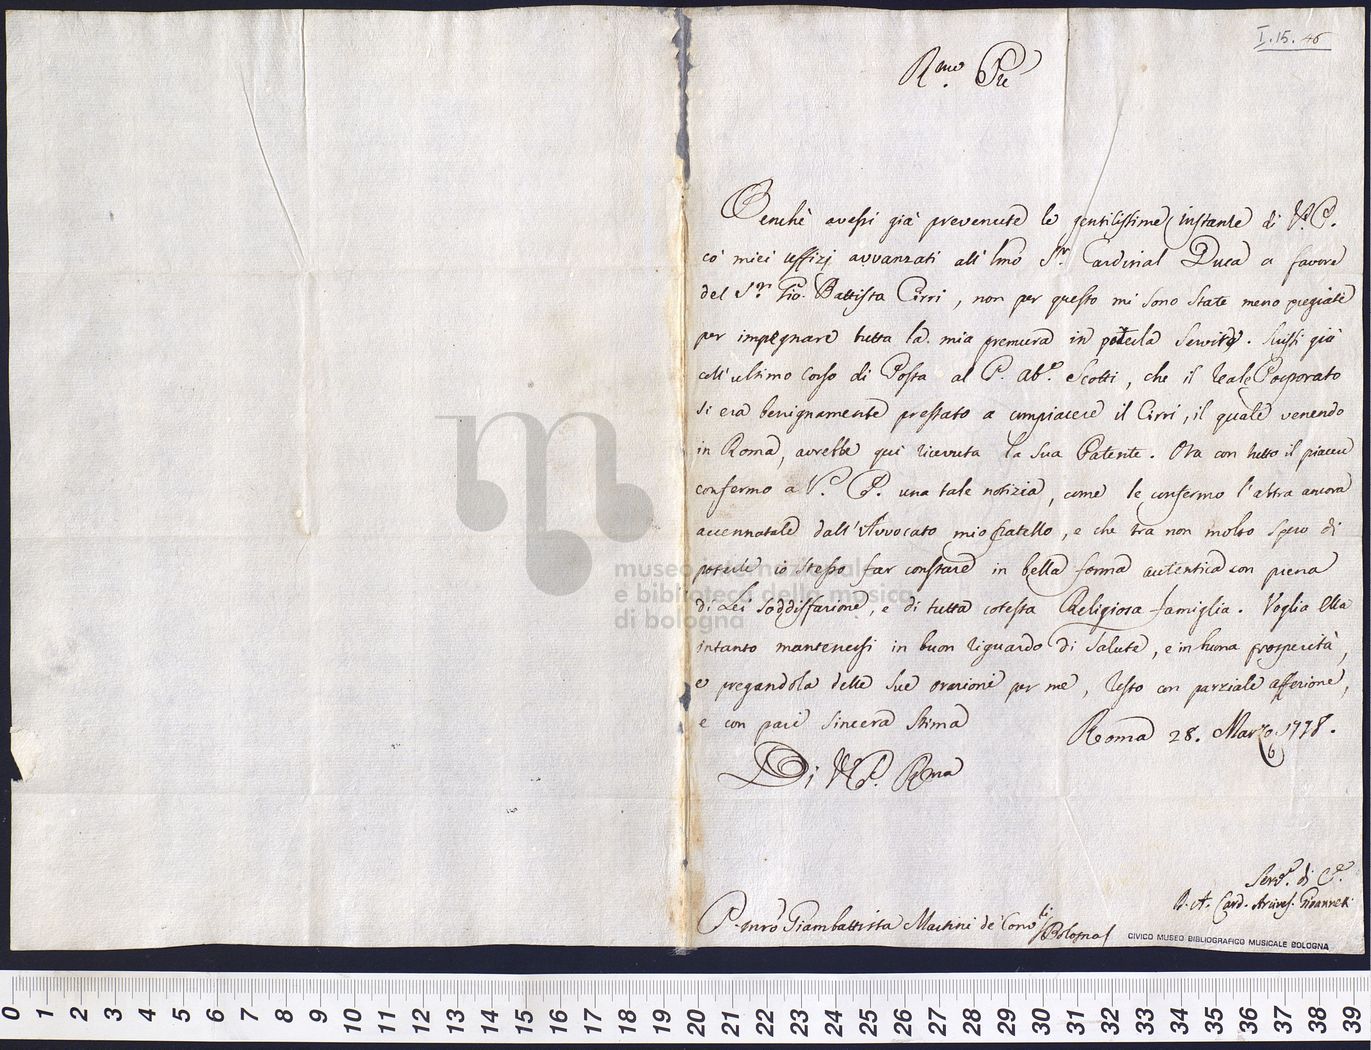 I.15.46
Rmo. Pre
Benchè avessi già prevenute le gentilissime instanze di V. P.
co' miei uffizj avvanzati all'Emo Sr. Cardinal Duca a favore
del Sr. Gio. Battista Cirri, non per questo mi sono state meno pregiate
per impegnare tutta la mia premura in poterla servire. Scrissi già
coll'ultimo corso di Posta al P. Abe. Scotti, che il Reale Porporato
si era benignamente prestato a compiacere il Cirri, il quale venendo
in Roma, avrebbe qui ricevuta la sua Patente. Ora con tutto il piacere
confermo a V. P. una tale notizia, come le confermo l'altra ancora
accennatale dall'Avvocato mio fratello, e che tra non molto spero di
poterle io stesso far constare in bella forma autentica con piena
di Lei soddisfazione, e di tutta cotesta Religiosa famiglia. Voglia Ella
intanto mantenersi in buon riguardo di salute, e in buona prosperità,
e pregandola delle sue orazioni per me, resto con parziale affezione,
e con pari sincera stima Roma 28. Marzo 1778.
Di V. P. Rma
Servo. di C.
A. Card. Arcives. Gioanneti
P. Mro Giambattista Martini de' Convli Bologna
CIVICO MUSEO BIBLIOGRAFICO MUSICALE BOLOGNA
museo internazionale
e biblioteca della musica
di bologna
0 1 2 3 4 5 6 7 8 9 10 11 12 13 14 15 16 17 18 19 20 21 22 23 24 25 26 27 28 29 30 31 32 33 34 35 36 37 38 39